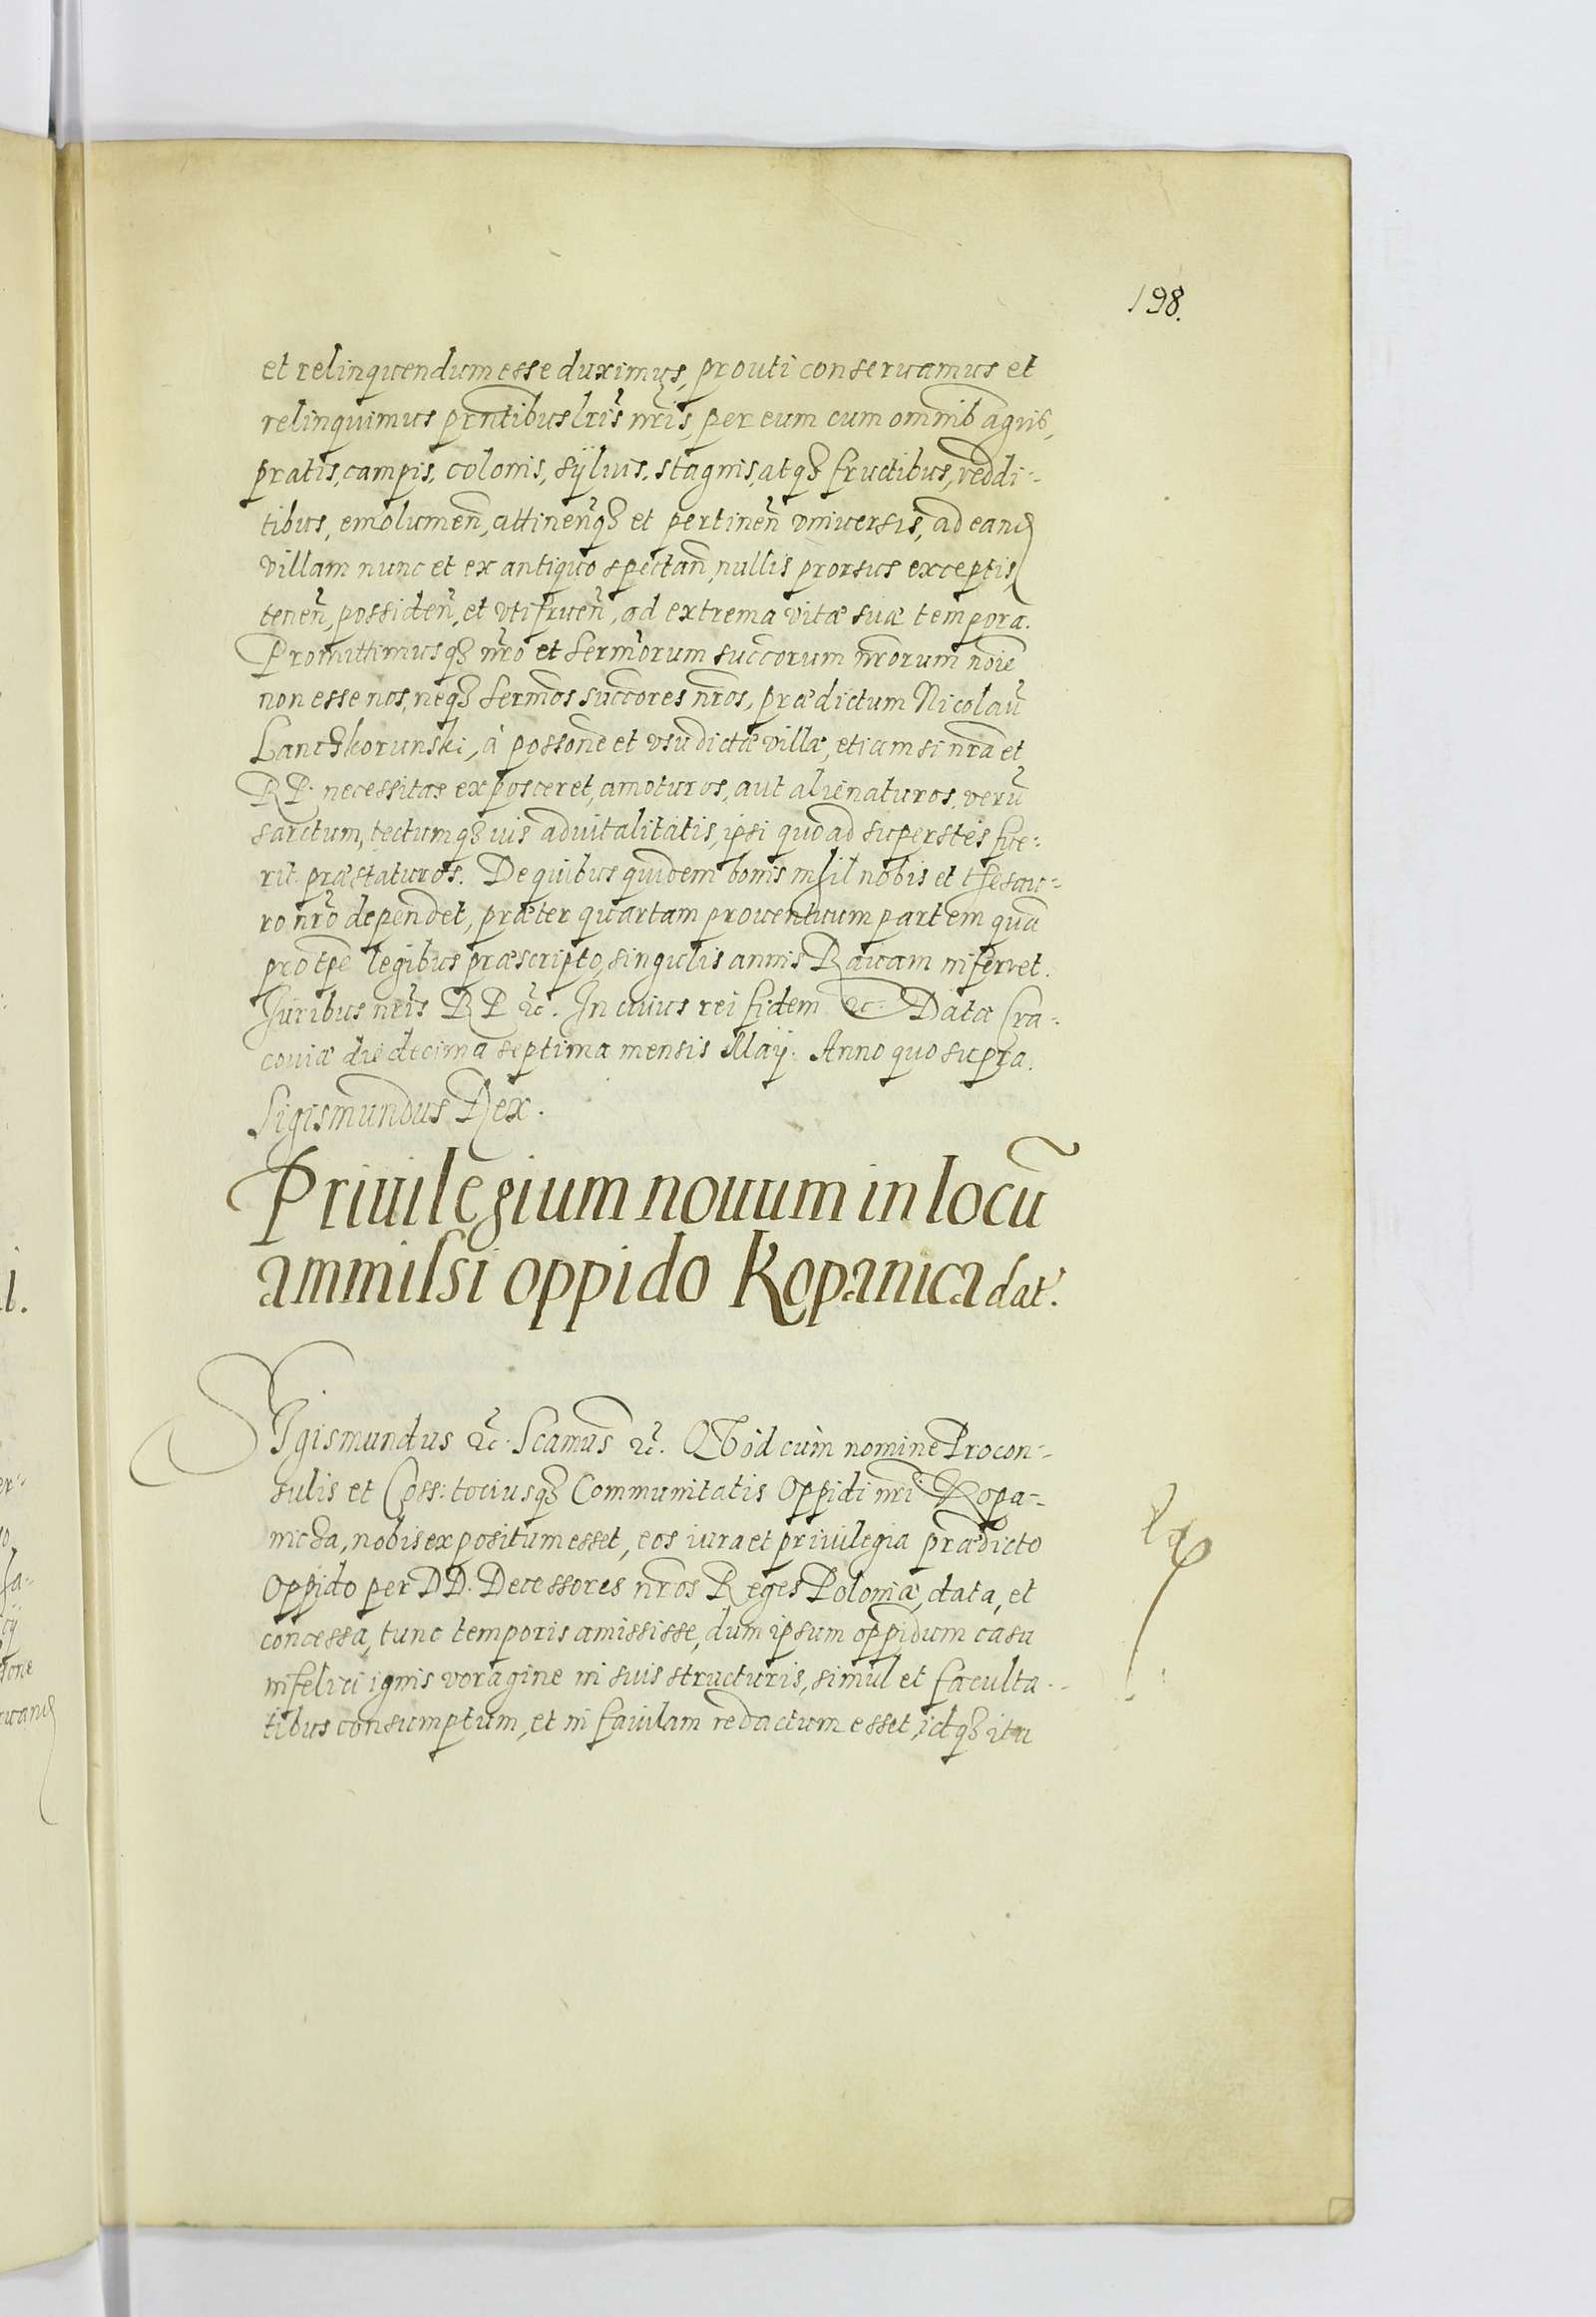 198.
et relinquendum esse duximus, prouti conseruamus et
relinquimus pñtibus lris nris, per eum cum omnib agris,
pratis, campis, colonis, sÿluis, stagnis, atqꝫ fructibus, reddi-
tibus, emolumen̄, attinen̄qꝫ et pertinen̄ vniuersis, ad eand
villam nunc et ex antiquo spectan̄, nullis prorsus exceptis,
tenen̄, possiden̄, et vtifruen̄, ad extrema vitæ suæ tempora.
Promittimusqꝫ nr̄o et Sermorum succorum nr̄orum noie
non esse nos, neqꝫ Sermos succores nr̄os, prædictum Nicolaū
Lanczkorunski, à possone et vsu dictæ villæ, etiamsi nr̄a et
RP. necessitas exposceret, amoturos, aut alienaturos, verū
sarctum, tectumqꝫ ius aduitalitatis, ipsi quoad superstes fue-
rit præstaturos. De quibus quidem bonis nihil nobis et thesau-
ro nr̄o dependet, præter quartam prouentuum partem quā
pro tpe legibus præscripto, singulis annis Rauam inferret.
Juribus nris RP &c. In cuius rei fidem &c. Datæ Cra-
couiæ die decima septima mensis Maij. Anno quo supra.
Sigismundus Rex.
Priuilegium nouum in locū
ammissi oppido Kopanica dat.
SIgismundus &c. Scamus &c. Quod cùm nomine Procon-
sulis et Coss: tociusqꝫ Communitatis Oppidi nri Kopa-
nicza, nobis expositum esset, eos iura et priuilegia prædicto
Oppido per DD. Decessores nr̄os Reges Poloniæ, data, et
concessa, tunc temporis amississe, dum ipsum oppidum casu
infelici ignis voragine in suis structuris, simul et faculta-
tibus consumptum, et in fauilam redactum esset, idqꝫ ita